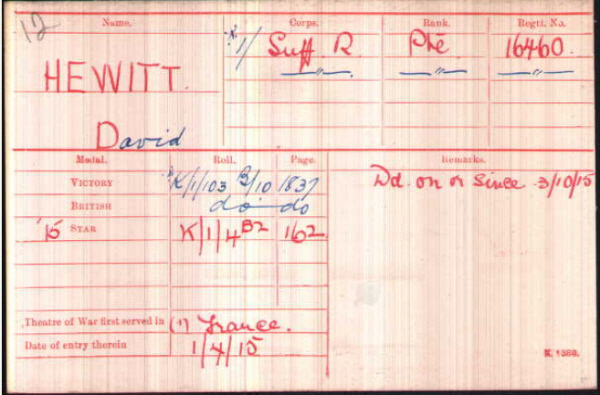 12
Name. Corps. Rank. Regtl. No.
HEWITT. 1/ Suff R. Pte 16460.
—"— —"— —"—
David
Medal. Roll. Page. Remarks.
VICTORY K/1/103 B/10 1837 Dd. on or Since 3/10/15
BRITISH do do
'15 STAR K/1/4 B2 162
Theatre of War first served in (1) France.
Date of entry therein 1/4/15
K. 1380.